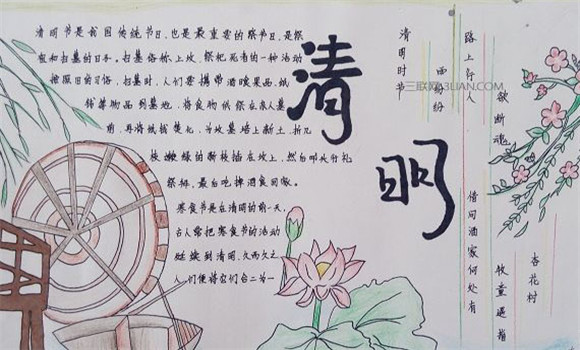 清明节是我国传统节日,也是最重要的祭节日,是祭
祖和扫墓的日子。扫墓俗称上坟,祭祀死者的一种活动
按照旧的习俗,扫墓时,人们要携带酒食果品,纸
钱等物品到墓地,将食物供祭在亲人墓
前,再将纸钱焚化,为坟墓培上新土,折几
枝嫩绿的新枝插在坟上,然后叩头行礼
祭拜,最后吃掉酒食回家。
寒食节是在清明的前一天,
古人常把寒食节的活动
延续到清明,久而久之,
人们便将它们合二为一
清明
清明时节
雨纷纷
路上行人
欲断魂
借问酒家何处有
牧童遥指
杏花村
三联网3LIAN.COM